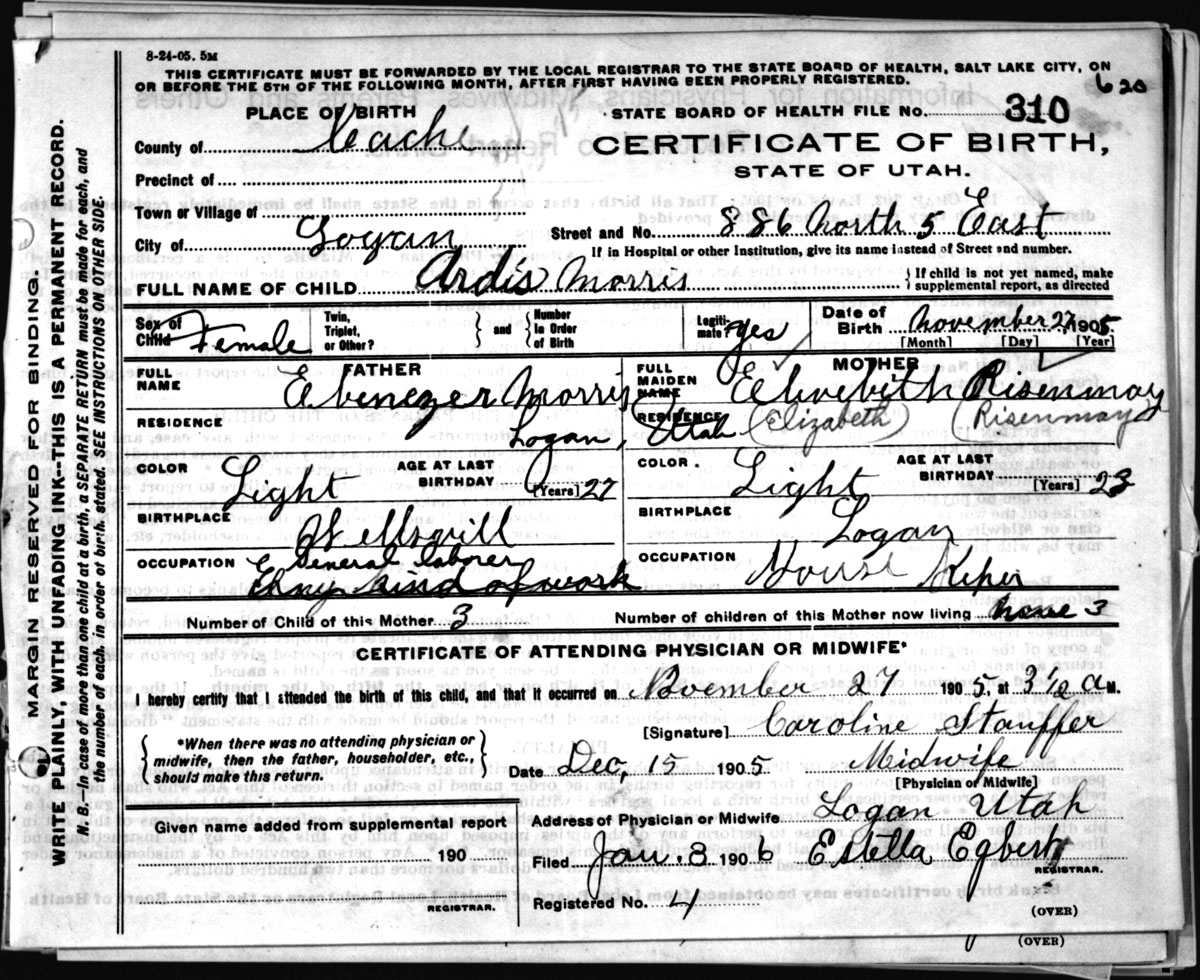 8-24-05. 5M
THIS CERTIFICATE MUST BE FORWARDED BY THE LOCAL REGISTRAR TO THE STATE BOARD OF HEALTH, SALT LAKE CITY, ON
OR BEFORE THE 5TH OF THE FOLLOWING MONTH, AFTER FIRST HAVING BEEN PROPERLY REGISTERED.
620
PLACE OF BIRTH
STATE BOARD OF HEALTH FILE NO. 310
County of Cache
CERTIFICATE OF BIRTH,
STATE OF UTAH.
Precinct of
Town or Village of
Street and No. 886 North 5 East
City of Logan
If in Hospital or other Institution, give its name instead of Street and number.
FULL NAME OF CHILD Ardis Morris
} If child is not yet named, make
supplemental report, as directed
Sex of Child Female
Twin, Triplet, or Other? } and { Number in Order of Birth
Legitimate? yes
Date of Birth November 27 1905
[Month] [Day] [Year]
FATHER
FULL NAME Ebenezer Morris
RESIDENCE Logan, Utah
COLOR Light
AGE AT LAST BIRTHDAY 27
[Years]
BIRTHPLACE Wellsvill
OCCUPATION General laborer
Eny kind of work
MOTHER
FULL MAIDEN NAME Elivebith Risenmay
RESIDENCE (Elizabeth) (Risenmay
COLOR Light
AGE AT LAST BIRTHDAY 23
[Years]
BIRTHPLACE Logan
OCCUPATION House Keper
Number of Child of this Mother 3
Number of children of this Mother now living 3
CERTIFICATE OF ATTENDING PHYSICIAN OR MIDWIFE*
I hereby certify that I attended the birth of this child, and that it occurred on November 27 1905, at 3 1/2 a M.
[Signature] Caroline Stauffer
{ *When there was no attending physician or
midwife, then the father, householder, etc.,
should make this return. }
Date Dec, 15 1905
Midwife
[Physician or Midwife]
Given name added from supplemental report
190
REGISTRAR.
Address of Physician or Midwife Logan Utah
Filed Jan. 8 1906 Estella Egbert
REGISTRAR.
Registered No. 4
(OVER)
(OVER)
MARGIN RESERVED FOR BINDING.
WRITE PLAINLY, WITH UNFADING INK--THIS IS A PERMANENT RECORD.
N. B.--In case of more than one child at a birth, a SEPARATE RETURN must be made for each, and
the number of each, in order of birth, stated. SEE INSTRUCTIONS ON OTHER SIDE.